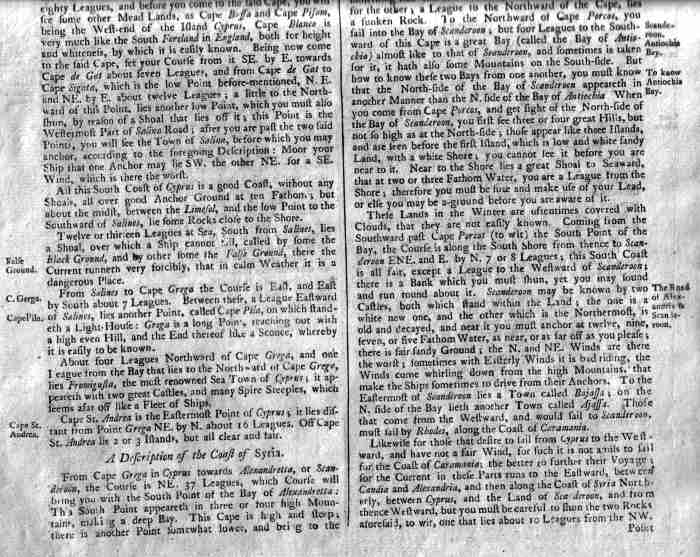 eighty Leagues, and before you come to the said Cape, you will
see some other Mead Lands, as Cape Baffa and Cape Pisani,
being the West-end of the Island Cyprus, Cape Blanco is
very much like the South Foreland in England, both for height
and whiteness, by which it is easily known. Being now come
to the said Cape, set your Course from it SE. by E. towards
Cape de Gat about seven Leagues, and from Cape de Gat to
Cape Sigata, which is the low Point before-mentioned, N. E.
and NE. by E. about twelve Leagues; a little to the North-
ward of this Point, lies another low Point, which you must also
shun, by reason of a Shoal that lies off it; this Point is the
Westermost Part of Salina Road; after you are past the two said
Points, you will see the Town of Salina, before which you may
anchor, according to the foregoing Description: Moor your
Ship that one Anchor may lie SW. the other NE. for a SE.
Wind, which is there the worst.
All this South Coast of Cyprus is a good Coast, without any
Shoals, all over good Anchor Ground at ten Fathom; but
about the midst, between the Limesol, and the low Point to the
Southward of Salines, lie some Rocks close to the Shore.
Twelve or thirteen Leagues at Sea, South from Salines, lies
a Shoal, over which a Ship cannot sail, called by some the
Black Ground, and by other some the False Ground, there the
Current runneth very forcibly, that in calm Weather it is a
dangerous Place.
False
Ground.
From Salines to Cape Grega the Course is East, and East
by South about 7 Leagues. Between these, a League Eastward
of Salines, lies another Point, called Cape Pila, on which stand-
eth a Light-House: Grega is a long Point, reaching out with
a high even Hill, and the End thereof like a Sconce, whereby
it is easily to be known.
C. Grega.
Cape Pila.
About four Leagues Northward of Cape Grega, and one
League from the Bay that lies to the Northward of Cape Grega,
lies Fromagusta, the most renowned Sea Town of Cyprus; it ap-
peareth with two great Castles, and many Spire Steeples, which
seems afar off like a Fleet of Ships.
Cape St. Andrea is the Eastermost Point of Cyprus; it lies dis-
tant from Point Grega NE. by N. about 16 Leagues. Off Cape
St. Andrea lie 2 or 3 Islands, but all clear and fair.
Cape St.
Andrea.
A Description of the Coast of Syria.
From Cape Grega in Cyprus towards Alexandretta, or Scan-
deroon, the Course is NE. 37 Leagues, which Course will
bring you with the South Point of the Bay of Alexandretta:
This South Point appeareth in three or four high Moun-
tains, making a deep Bay. This Cape is high and steep;
there is another Point somewhat lower, and being to the
for the other; a League to the Northward of the Cape, lies
a sunken Rock. To the Northward of Cape Porcas, you
fall into the Bay of Scanderoon; but four Leagues to the South-
ward of this Cape is a great Bay (called the Bay of Antio-
chia) almost like to that of Scanderoon, and sometimes is taken
for it, it hath also some Mountains on the South-side. But
how to know these two Bays from one another, you must know
that the North-side of the Bay of Scanderoon appeareth in
another Manner than the N. side of the Bay of Antiochia. When
you come from Cape Porcas, and get sight of the North-side of
the Bay of Scanderoon, you first see three or four great Hills, but
not so high as at the North-side; those appear like three Islands,
and are seen before the first Island, which is low and white sandy
Land, with a white Shore; you cannot see it before you are
near to it. Near to the Shore lies a great Shoal to Seaward,
that at two or three Fathom Water, you are a League from the
Shore; therefore you must sound and make use of your Lead,
or else you may be a-ground before you are aware of it.
Scande-
roon.
Antiochia
Bay.
To know
Antiochia
Bay.
These Lands in the Winter are oftentimes covered with
Clouds, that they are not easily known. Coming from the
Southward past Cape Porcas (to wit) the South Point of the
Bay, the Course is along the South Shore from thence to Scan-
deroon ENE. and E. by N. 7 or 8 Leagues; this South Coast
is all fair, except a League to the Westward of Scanderoon;
there is a Bank which you must shun, yet you may sound
and run round about it. Scanderoon may be known by two
Castles, both which stand within the Land; the one is a
white new one, and the other which is the Northermost, is
old and decayed, and near it you must anchor at twelve, nine,
seven, or five Fathom Water, as near, or as far off as you please;
there is fair sandy Ground; the N. and NE. Winds are there
the worst; sometimes with Easterly Winds it is bad riding, the
Winds come whirling down from the high Mountains, that
make the Ships sometimes to drive from their Anchors. To the
Eastermost of Scanderoon lies a Town called Bajassa; on the
N. side of the Bay lieth another Town called Ajassa. Those
that come from the Westward, and would sail to Scanderoon,
must sail by Rhodes, along the Coast of Caramania.
The Road
of Alex-
andria or
Scande-
roon.
Likewise for those that desire to sail from Cyprus to the West-
ward, and have not a fair Wind, for such it is not amiss to sail
for the Coast of Caramania; the better to further their Voyage;
for the Current in these Parts runs to the Eastward, between
Candia and Alexandria, and then along the Coast of Syria North-
erly, between Cyprus, and the Land of Scanderoon, and from
thence Westward, but you must be careful to shun the two Rocks
aforesaid, to wit, one that lies about 10 Leagues from the NW.
Point